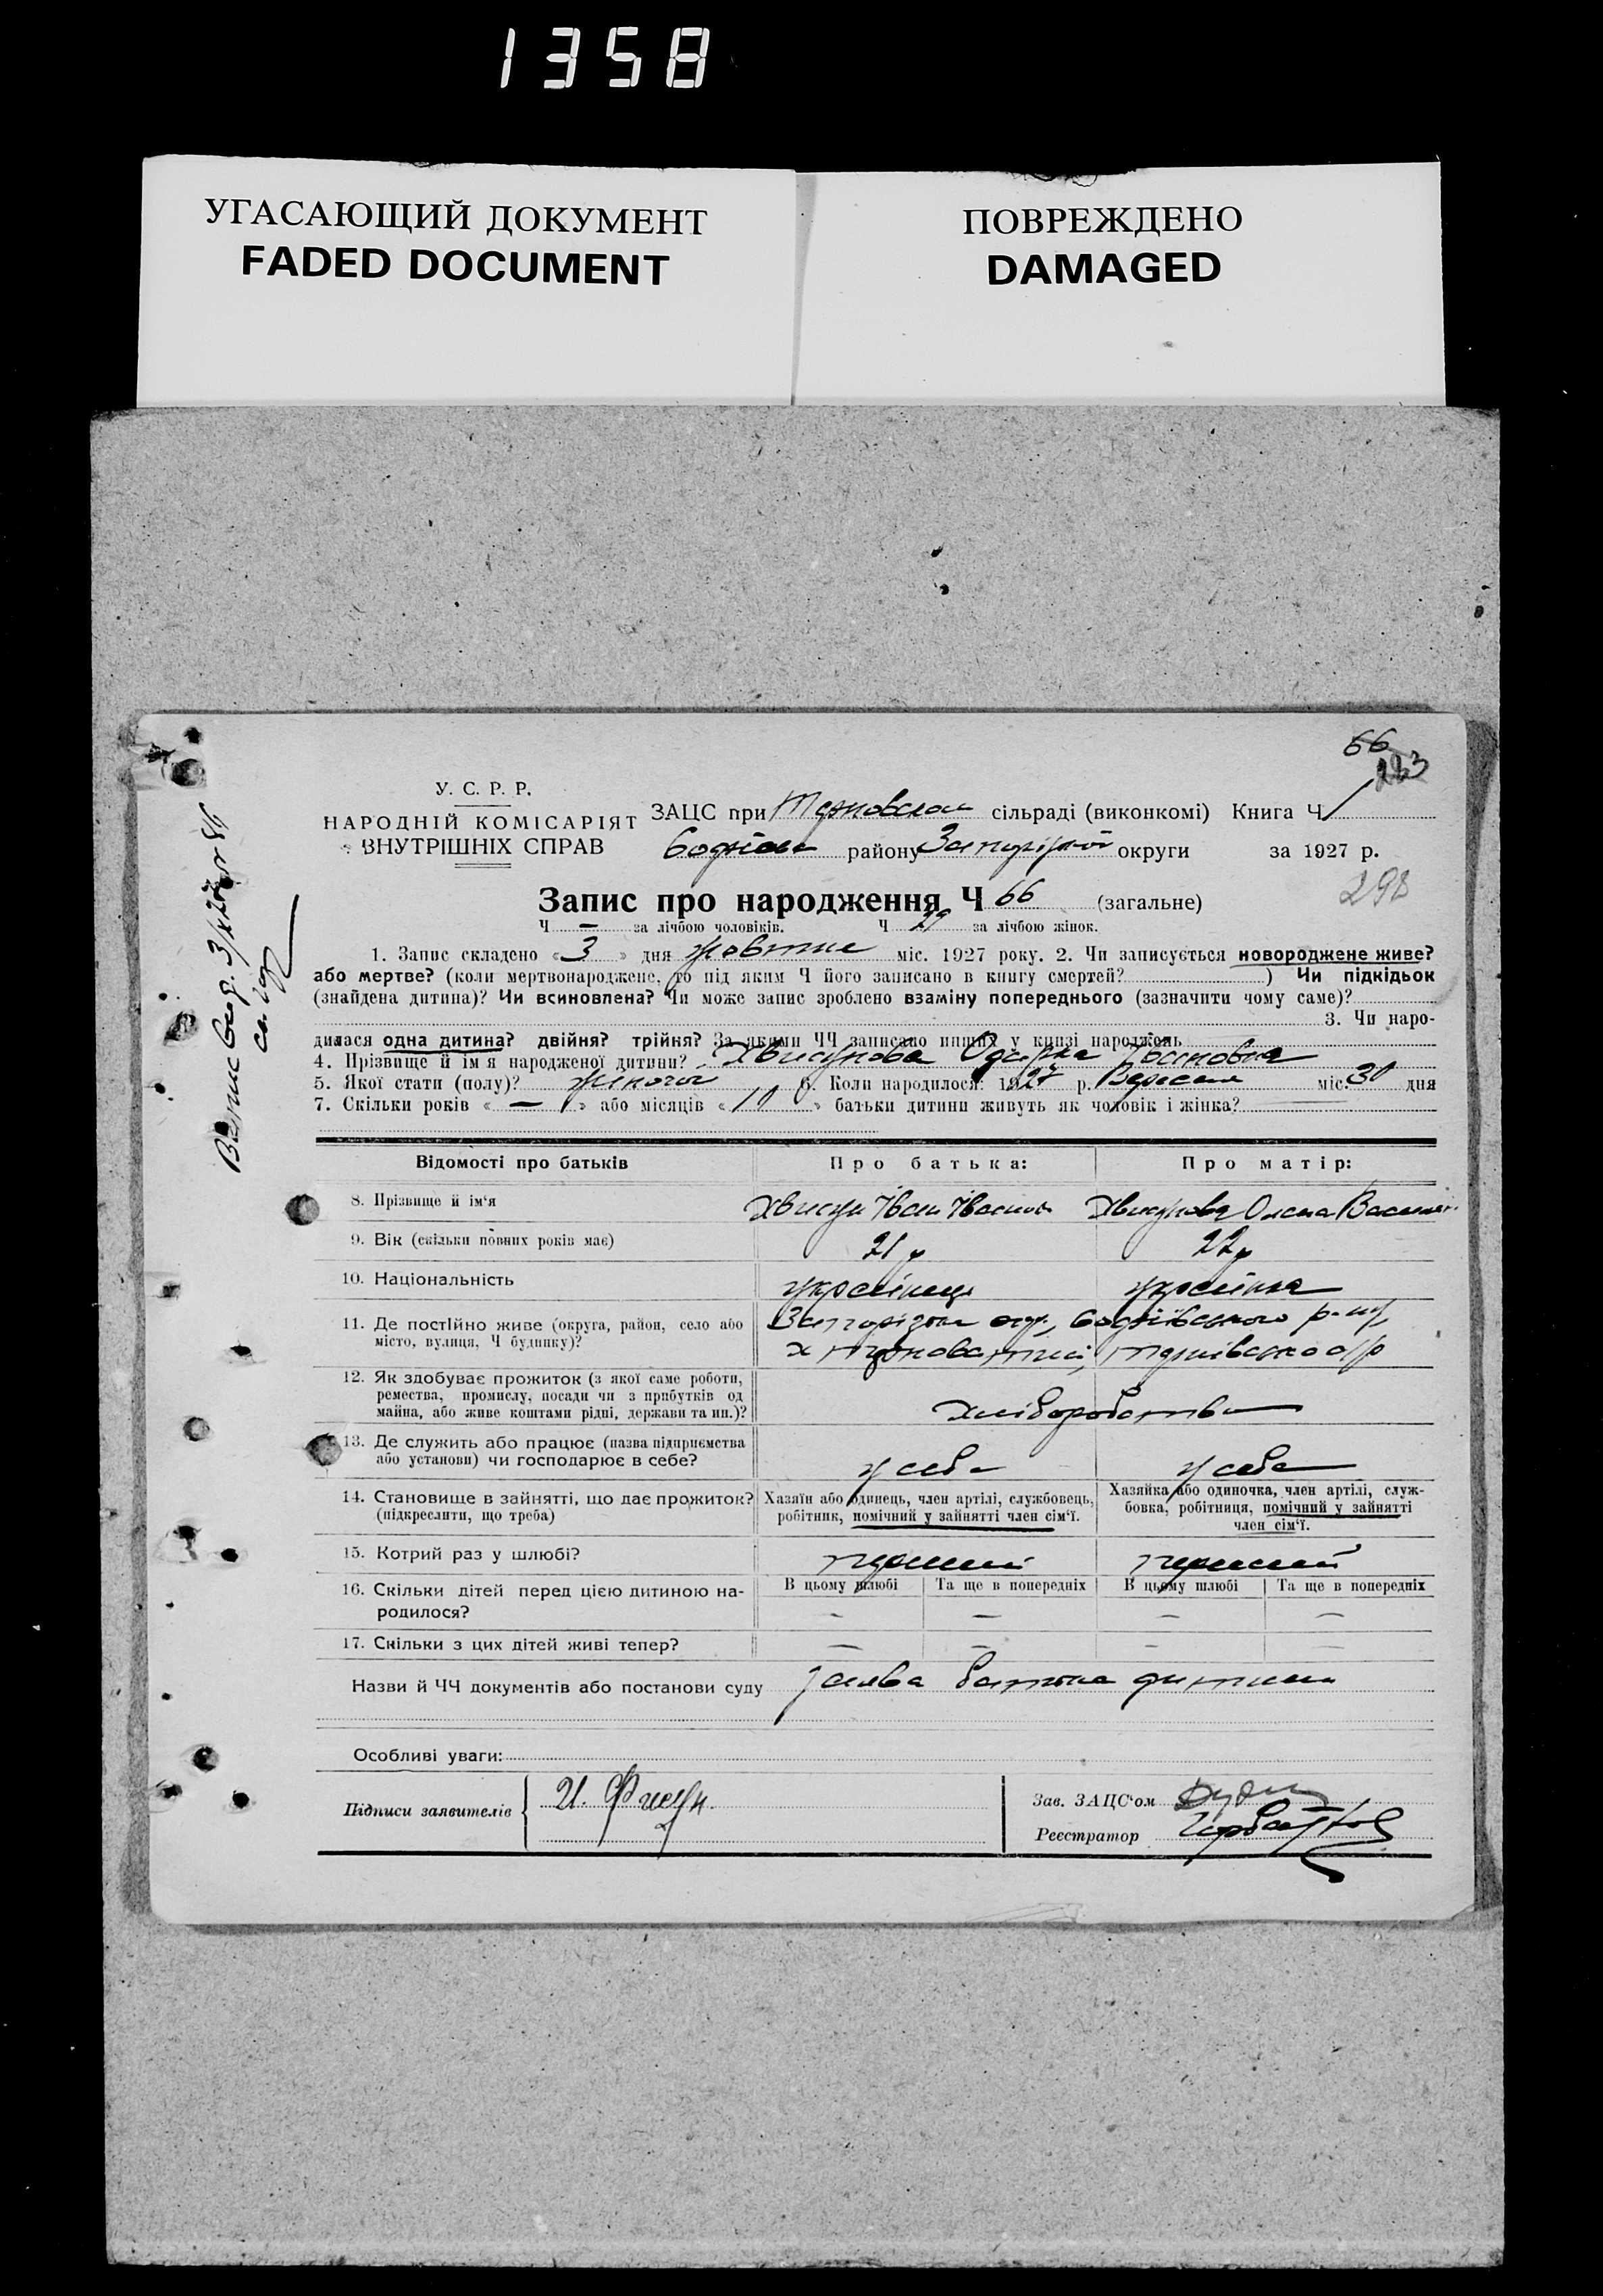 1358
УГАСАЮЩИЙ ДОКУМЕНТ
FADED DOCUMENT
ПОВРЕЖДЕНО
DAMAGED
66
У. С. Р. Р.
НАРОДНІЙ КОМІСАРІЯТ
ВНУТРІШНІХ СПРАВ
ЗАЦС при сільраді (виконкомі) Книга Ч
району округи за 1927 р.
298
Запис про народження Ч 66 (загальне)
Ч — за лічбою чоловіків. Ч 29 за лічбою жінок.
1. Запис складено « 3 » дня жовтня міс. 1927 року. 2. Чи записується новороджене живе?
або мертве? (коли мертвонароджене, то під яким Ч його записано в книгу смертей? ) Чи підкідьок
(знайдена дитина)? Чи всиновлена? Чи може запис зроблено взаміну попереднього (зазначити чому саме)?
3. Чи наро-
дилася одна дитина? двійня? трійня? За якими ЧЧ записано инших у книзі народжень
4. Прізвище й ім'я народженої дитини? Хвисунова Одарка Івановна
5. Якої стати (полу)? жіночої 6. Коли народилося: 1927 р. Вересня міс 30 дня
7. Скільки років « — » або місяців « 10 » батьки дитини живуть як чоловік і жінка?
Відомості про батьків
Про батька:
Про матір:
8. Прізвище й ім'я
Хвисун Іван Іванов
Хвисунова Олена
9. Вік (скільки повних років має)
21 р
22 р
10. Національність
українець
українка
11. Де постІйно живе (округа, район, село або
місто, вулиця, Ч будинку)?
12. Як здобуває прожиток (з якої саме роботи,
ремества, промислу, посади чи з прибутків од
майна, або живе коштами рідні, держави та ин.)?
Хліборобство
13. Де служить або працює (назва підприємства
або установи) чи господарює в себе?
у себе
у себе
14. Становище в зайнятті, що дає прожиток?
(підкреслити, що треба)
Хазяїн або одинець, член артілі, службовець,
робітник, помічний у зайнятті член сім'ї.
Хазяйка або одиночка, член артілі, служ-
бовка, робітниця, помічний у зайнятті
член сім'ї.
15. Котрий раз у шлюбі?
перший
перший
16. Скільки дітей перед цією дитиною на-
родилося?
В цьому шлюбі Та ще в попередніх
В цьому шлюбі Та ще в попередніх
— — — —
17. Скільки з цих дітей живі тепер?
— — — —
Назви й ЧЧ документів або постанови суду заява батька дитини
Особливі уваги:
Підписи заявителів
Зав. ЗАЦС'ом
Реєстратор